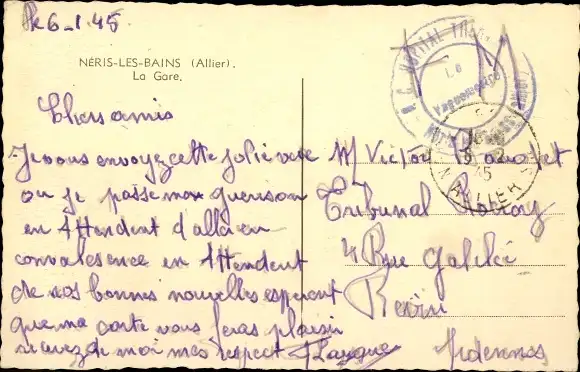 le 6-1.45
NÉRIS-LES-BAINS (Allier).
La Gare.
Chers amis
Je vous envoyz cette jolie vue
ou je passe mon guerison
en Attendent d'allai en
convalesence en Attendent
de vos bonnes nouvelles esperent
que ma carte vous feras plaisir
recevez de moi mes respect
Mr Victor
Tribunal
4 Rue Galilée
Ardennes
HOPITAL
Le
Vaguemestre
45
ALLIER